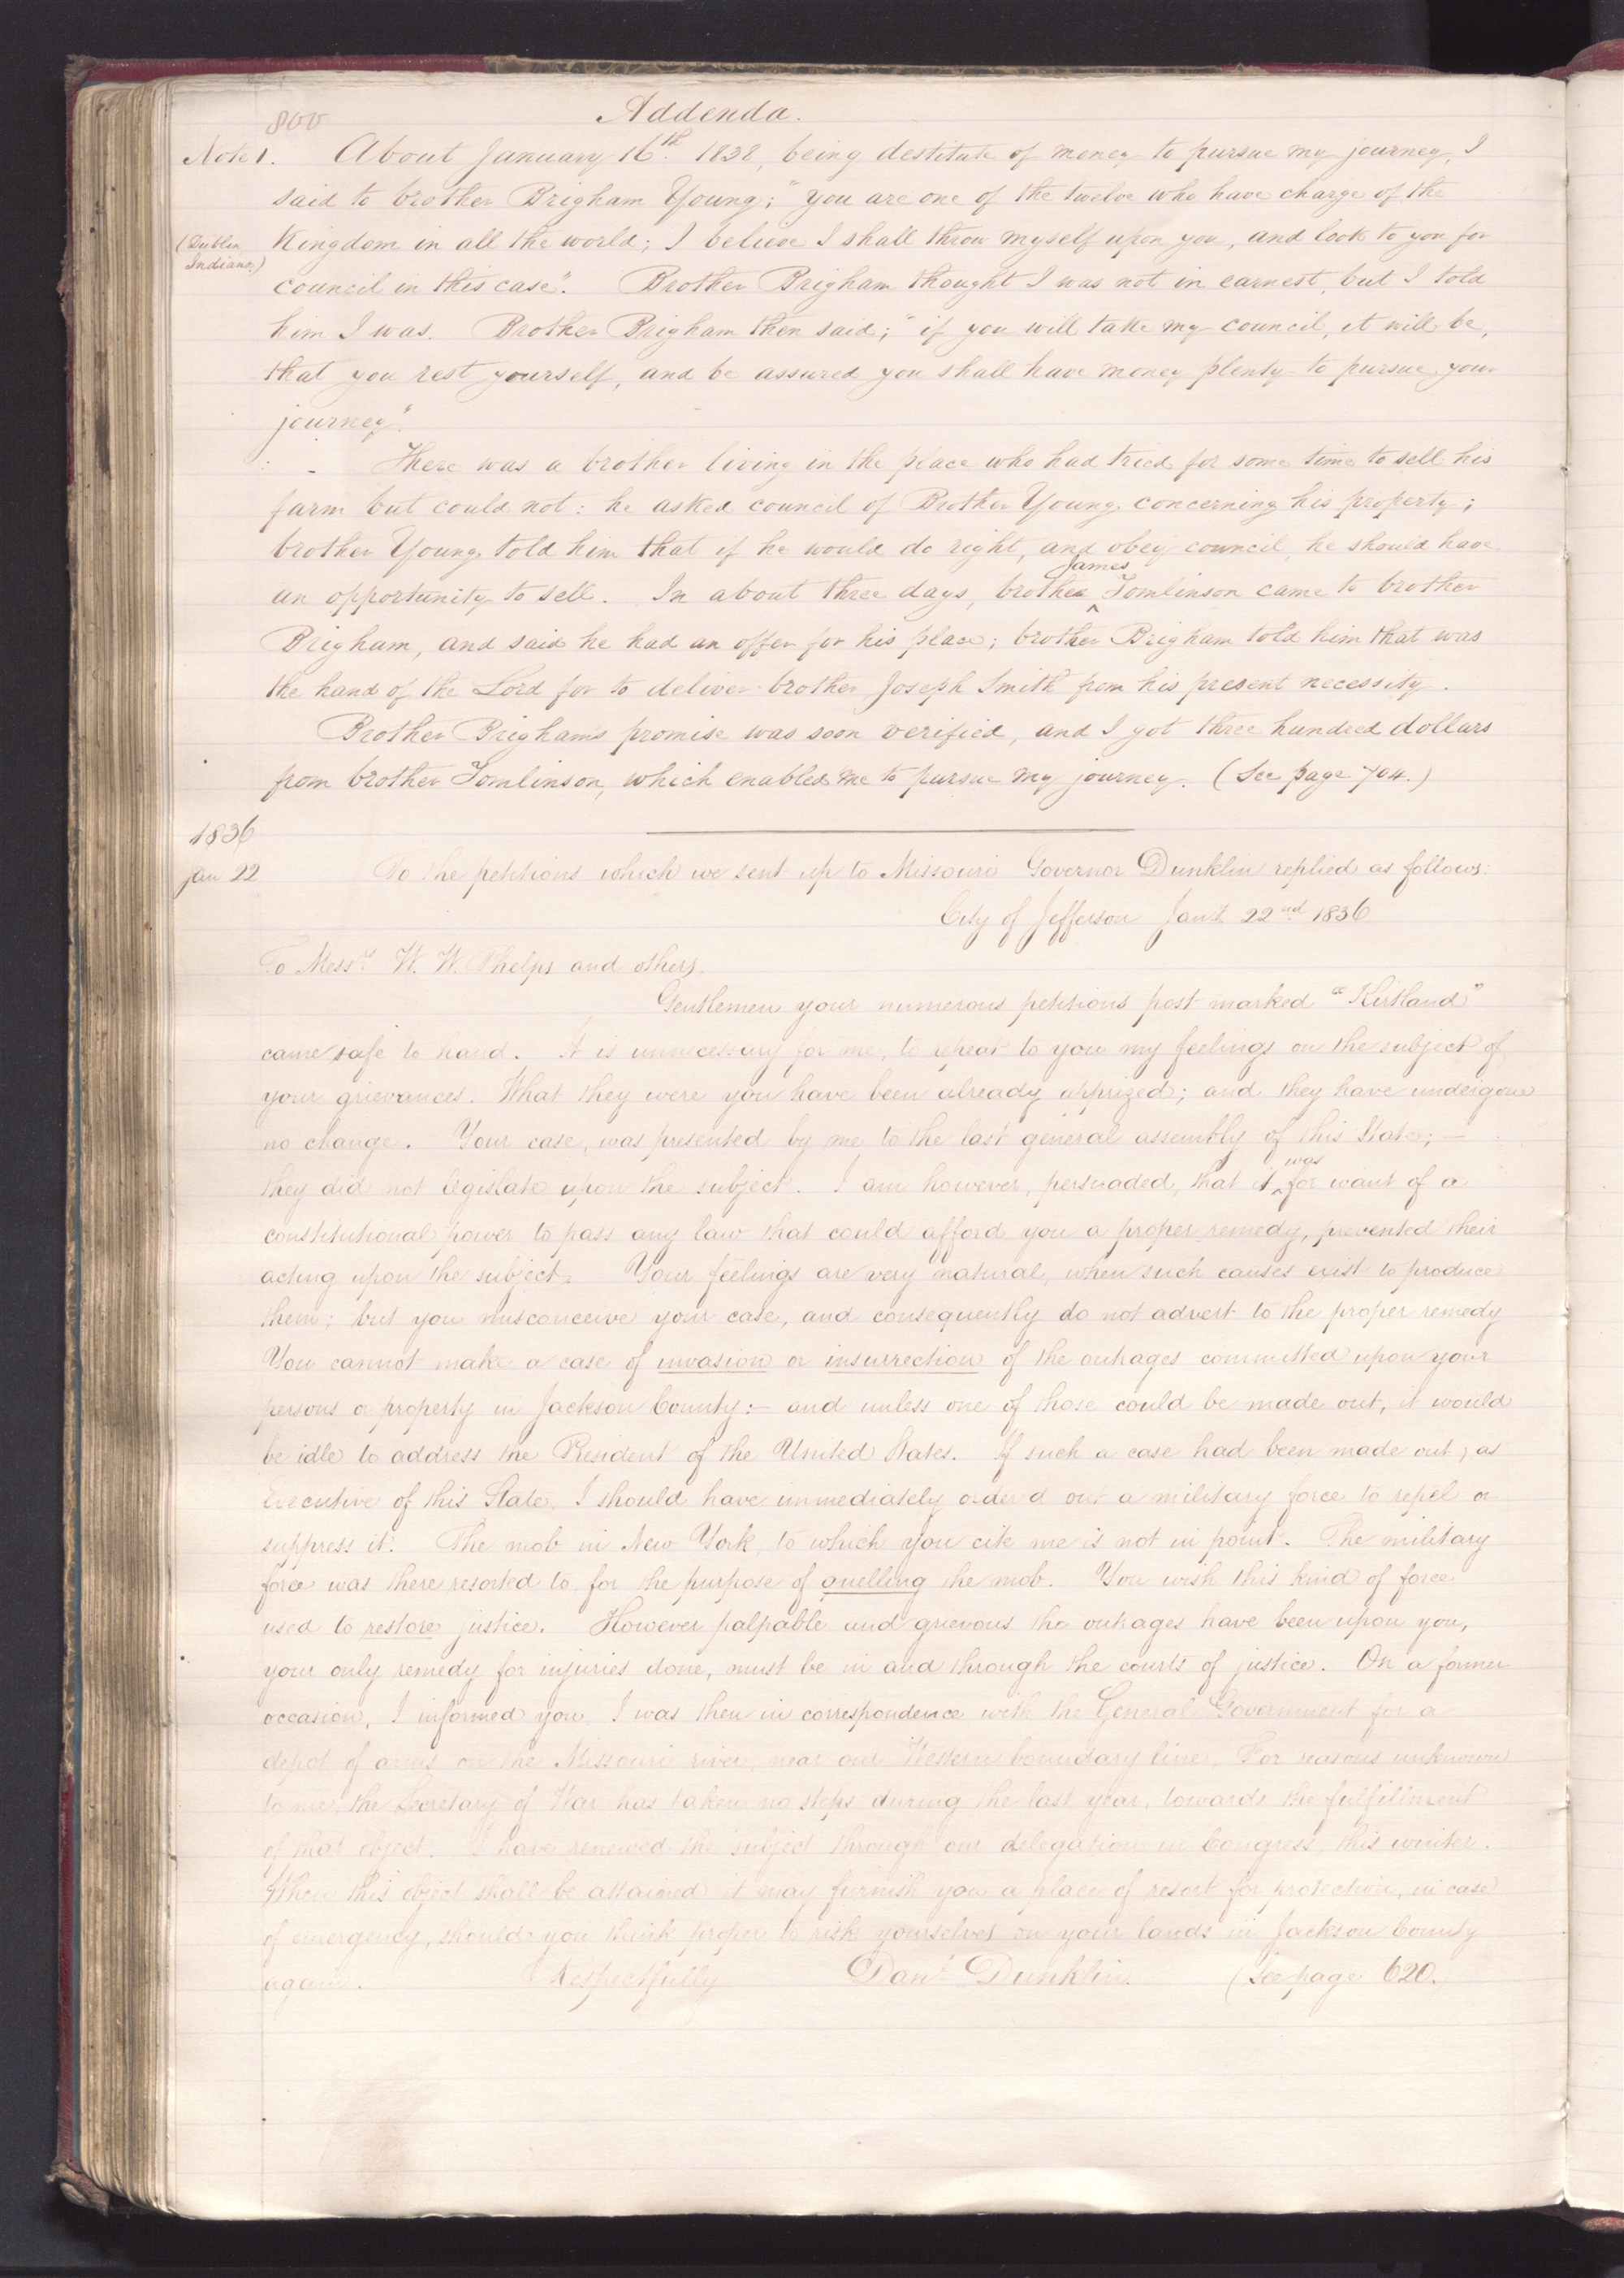 800
Addenda.
Note 1. About January 16th. 1838, being destitute of money to pursue my journey, I
said to brother Brigham Young; "you are one of the twelve who have charge of the
(Dublin
Indiana.)
Kingdom in all the world; I believe I shall throw myself upon you, and look to you for
council in this case". Brother Brigham thought I was not in earnest, but I told
him I was. Brother Brigham then said; "if you will take my council, it will be,
that you rest yourself, and be assured you shall have money plenty to pursue your
journey".
There was a brother living in the place who had tried for some time to sell his
farm but could not: he asked council of Brother Young concerning his property;
brother Young told him that if he would do right, and obey council, he should have
an opportunity to sell. In about three days, brother ^James Tomlinson came to brother
Brigham, and said he had an offer for his place; brother Brigham told him that was
the hand of the Lord for to deliver brother Joseph Smith from his present necessity.
Brother Brigham's promise was soon verified, and I got three hundred dollars
from brother Tomlinson, which enabled me to pursue my journey. (See page 704.)
1836
Jan 22 To the petitions which we sent up to Missouri Governor Dunklin replied as follows:
City of Jefferson Jany. 22nd 1836
To Messrs. W. W. Phelps and others,
Gentlemen your numerous petitions post marked "Kirtland"
came safe to hand. It is unnecessary for me, to repeat to you my feelings on the subject of
your grievances. What they were you have been already apprized; and they have undergone
no change. Your case, was presented by me to the last general assembly of this State; —
they did not legislate upon the subject. I am however, persuaded, that it ^was for want of a
constitutional power to pass any law that could afford you a proper remedy, prevented their
acting upon the subject. Your feelings are very natural, when such causes exist to produce
them; but you misconceive your case, and consequently do not advert to the proper remedy
You cannot make a case of invasion or insurrection of the outrages committed upon your
persons or property in Jackson County:— and unless one of those could be made out, it would
be idle to address the President of the United States. If such a case had been made out, as
Executive of this State, I should have immediately order'd out a military force to repel or
suppress it. The mob in New York, to which you cite me is not in point. The military
force was there resorted to, for the purpose of quelling the mob. You wish this kind of force
used to restore justice. However palpable and grievous the outrages have been upon you,
your only remedy for injuries done, must be in and through the courts of justice. On a former
occasion, I informed you, I was then in correspondence with the General Government for a
depot of arms on the Missouri river, near our Western boundary line. For reasons unknown
to me, the Secretary of War has taken no steps during the last year, towards the fulfillment
of that object. I have renewed the subject through our delegation in Congress, this winter.
When this object shall be attained it may furnish you a place of resort for protection, in case
of emergency, should you think proper to risk yourselves on your lands in Jackson County
again. Respectfully Danl. Dunklin. (See page 620.)